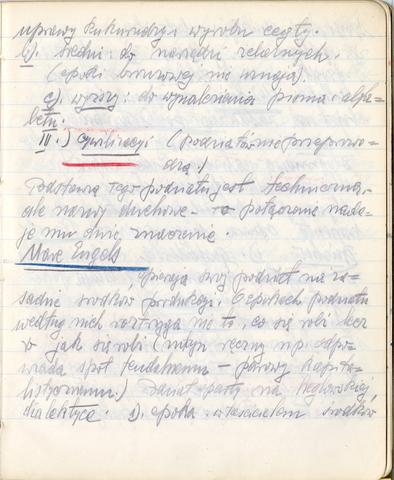 uprawy kukurydzy i wyrobu cegły.
b). średni: do narzędzi żelaznych.
(epoki brązowej nie uznaje).
c). wyższy: do wynalezienia pisma i alfa-
betu.
III.) Cywilizacyi (podziałów nie przeprowa-
dza.)
Podstawa tego podziału jest techniczna,
ale nazwy duchowe - to połączenie nada-
je mu dziś znaczenie.
Marx Engels
, opierają swój podział na za-
sadzie środków produkcji. O epokach podziału
według nich rozstrzyga nie to, co się robi lecz
to jak się robi (młyn ręczny np. odpo-
wiada społ. feudalnemu - parowy kapita-
listycznemu.) Podział oparty na heglowskiej
dialektyce. 1). epoka - właścicielem środków